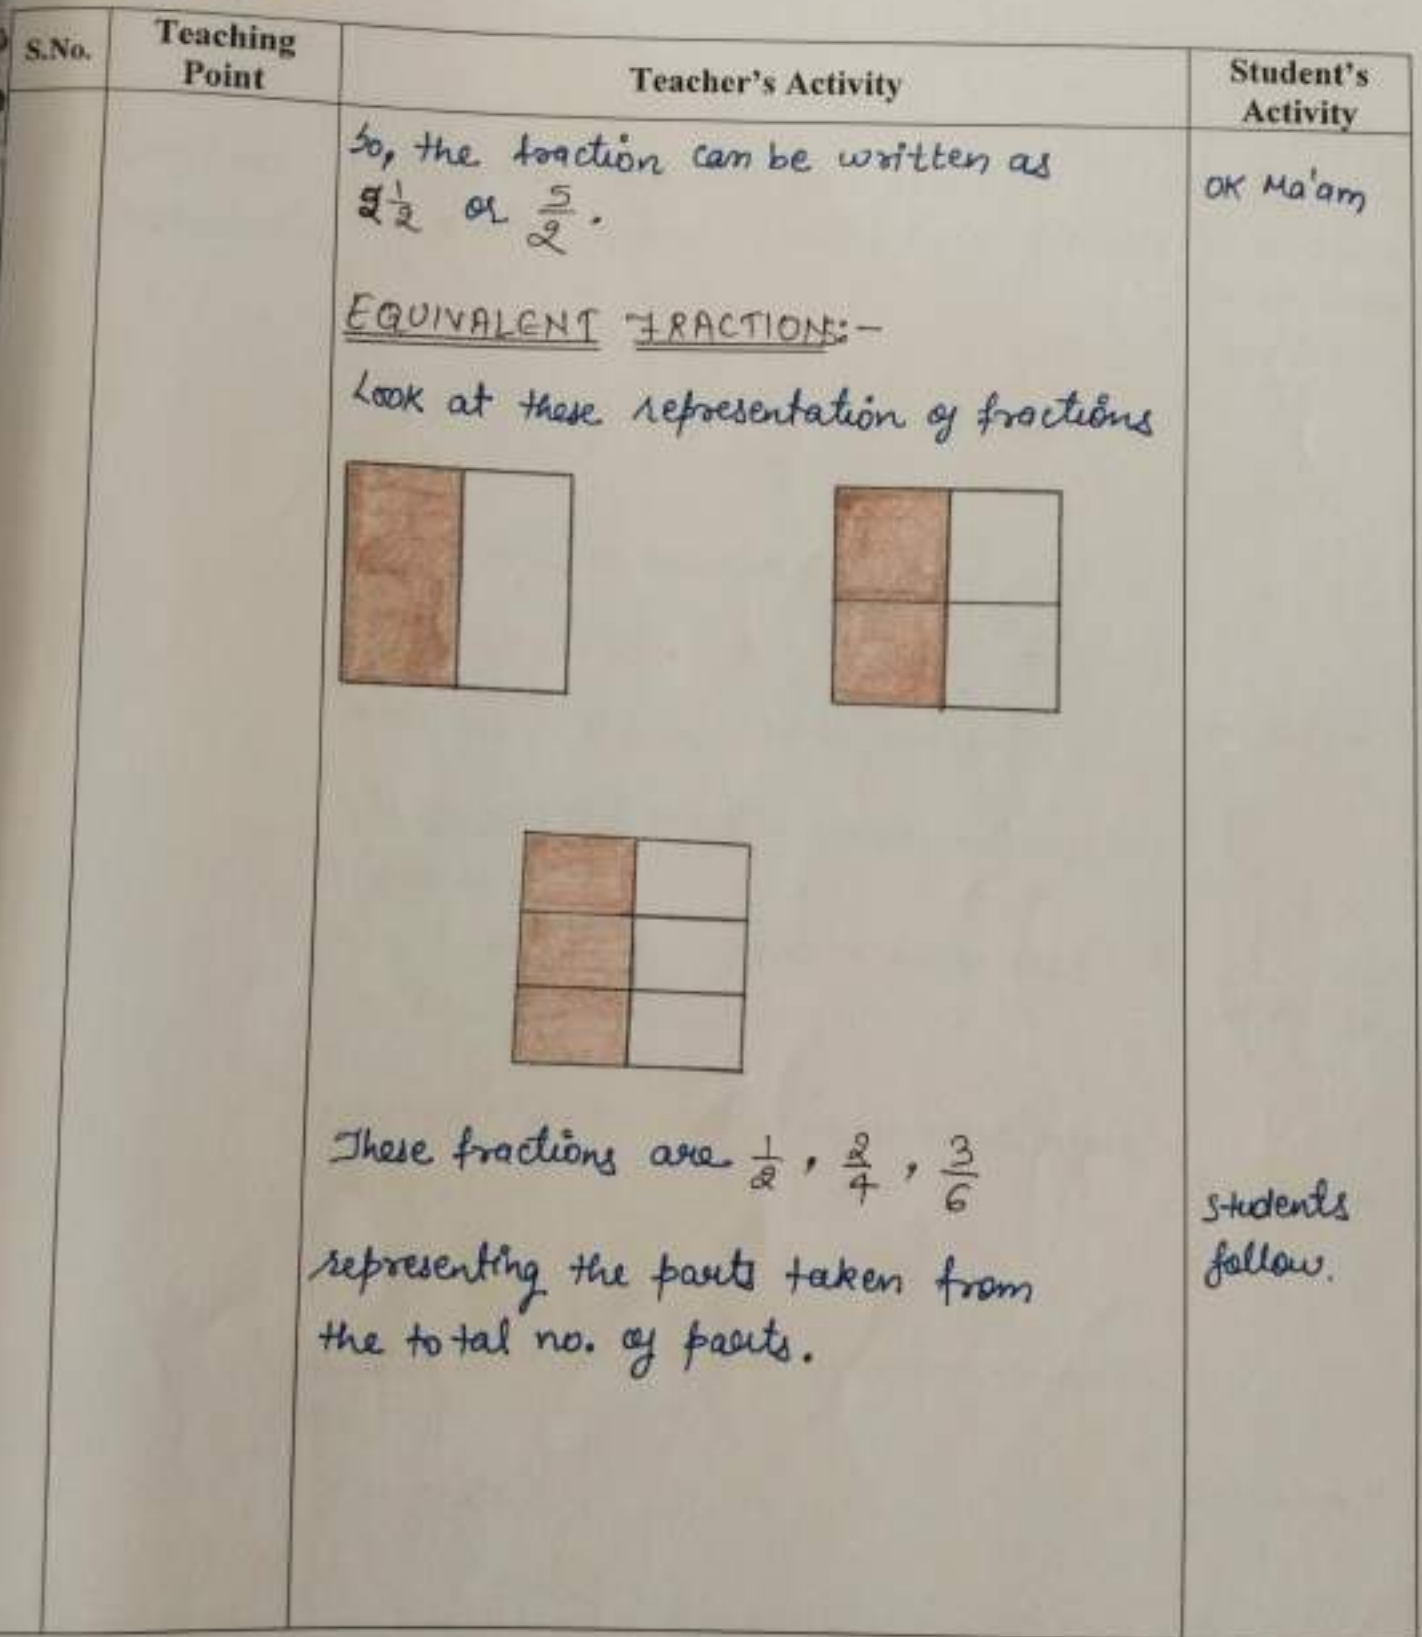 S.No.
Teaching
Point
Teacher's Activity
Student's
Activity
So, the fraction can be written as
2 1/2 or 5/2.
OK Ma'am
EQUIVALENT FRACTION:-
Look at these representation of fractions
These fractions are 1/2, 2/4, 3/6
representing the parts taken from
the total no. of parts.
Students
follow.